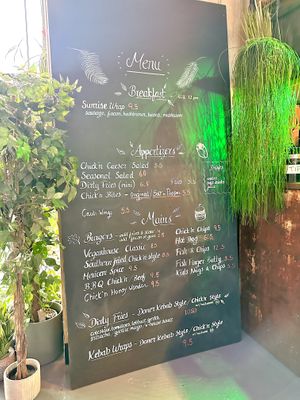 Menu
Breakfast
Sunrise Wrap 9.5
sausage, facon, hashbrowns, beans, mushroom
Appetizers
Chick'n Caesar Salad 8.5
Seasonal Salad 6.0
Dirty Fries (mini) 6.0
Chick'n Bites - Original/Salt n Pepper 5.5
Cauli Wings 5.5
Mains
Burgers - add fries &
Veganhouse Classic 8.5
Southern fried Chick'n style 8.5
Mexican Spice 9.5
B.B.Q Chick'n Beef 9.5
Chick'n Honey Wonder 9.5
Chick'n & Chips 9.5
Hot Dog 6.5
Fish & Chips 12.5
Fish Finger Butty 8.5
Kids Nugs & Chips 5.5
Dirty Fries - Doner Kebab Style / Chick'n Style
10.50
Kebab Wraps - Doner Kebab Style / Chick'n Style
9.5